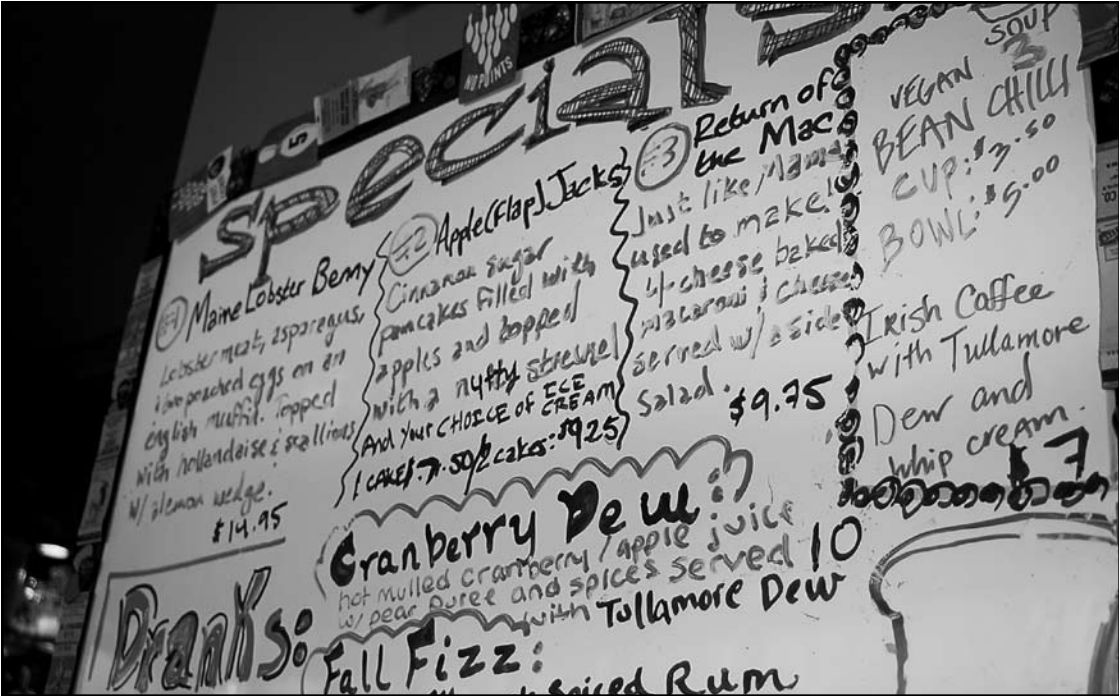 Specials
#1 Maine Lobster Benny
Lobster meat, asparagus,
& two poached eggs on an
english muffin. Topped
with hollandaise & scallions
w/ a lemon wedge.
$14.95
#2 Apple (Flap) Jacks
Cinnamon sugar
pancakes filled with
apples and topped
with a nutty streusel
AND YOUR CHOICE OF ICE
CREAM
1 CAKE $7.50/2 cakes: $925
#3 Return of
the Mac
Just like Mama
used to make!
4-cheese baked
macaroni & cheese
served w/ a side
Salad.
$9.75
SOUP
3
VEGAN
BEAN CHILI
CUP: $3.50
BOWL: $5.00
Irish Coffee
with Tullamore
Dew and
whip cream.
$7
Dranks:
Cranberry Dew:
hot mulled cranberry/apple juice
w/ pear puree and spices served 10
with Tullamore Dew
Fall Fizz:
Spiced Rum
NO POINTS
5